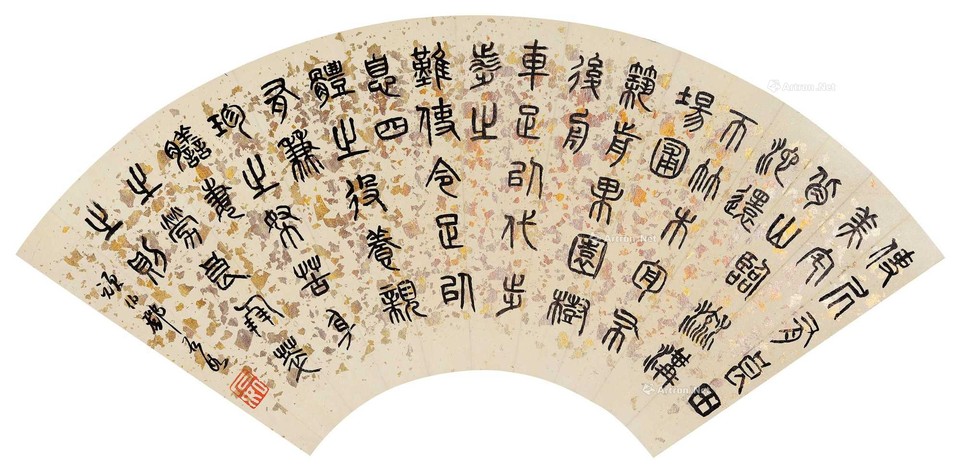 使尻有良田
美宅
背山臨流溝
池還
帀竹木周布
場圃
築前果園樹
後舟
車足以代步
涉之
難使令足以
息四
體之役養親
有兼
珍之孥苦身
膳妻
之勞良朋萃
止則